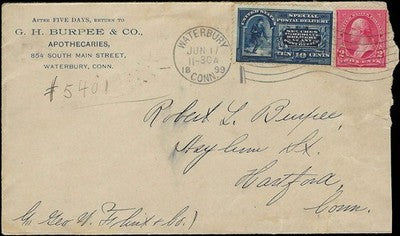 AFTER FIVE DAYS, RETURN TO
G. H. BURPEE & CO.,
APOTHECARIES,
854 SOUTH MAIN STREET,
WATERBURY, CONN.
#5401
WATERBURY
JUN 17
11-30A
1899
CONN.
SPECIAL
POSTAL DELIVERY
TEN 10 CENTS
2 2
Robert L. Burpee,
Asylum St.
Hartford,
Conn.
Geo W.
& Co.)